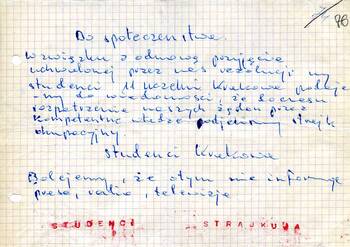 76
Do społeczeństwa.
W związku z odmową przyjęcia
uchwalonej przez nas rezolucji my
studenci 11 uczelni Krakowa podaje
my do wiadomości że do czasu
rozpatrzenia naszych żądań przez
kompetentne władze podjęliśmy strajk
okupacyjny.
Studenci Krakowa
Bolejemy, że o tym nie informuje
prasa, radio, telewizje
STUDENCI STRAJKUJĄ